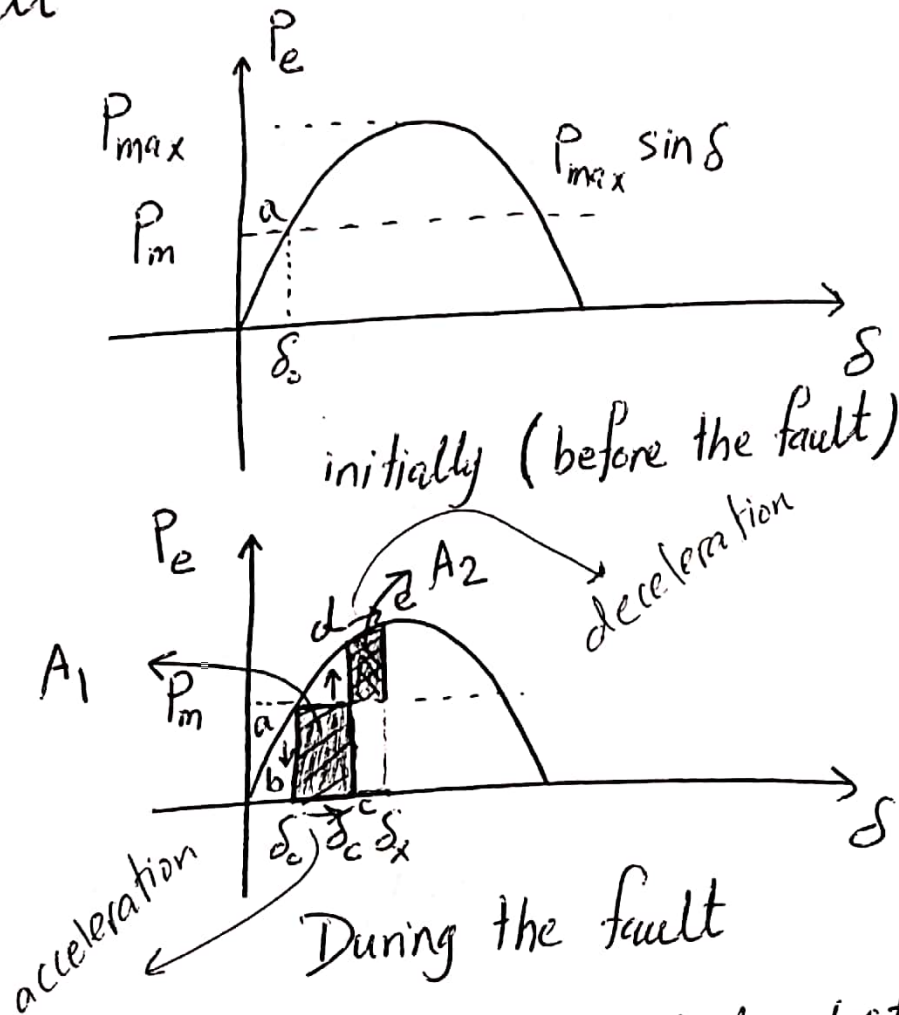 Pe
Pmax
Pmax sinδ
a
Pm
δ₀
δ
initially (before the fault)
Pe
deceleration
A2
d
e
A1
Pm
a
b
c
δ₀
δc
δx
δ
acceleration
During the fault